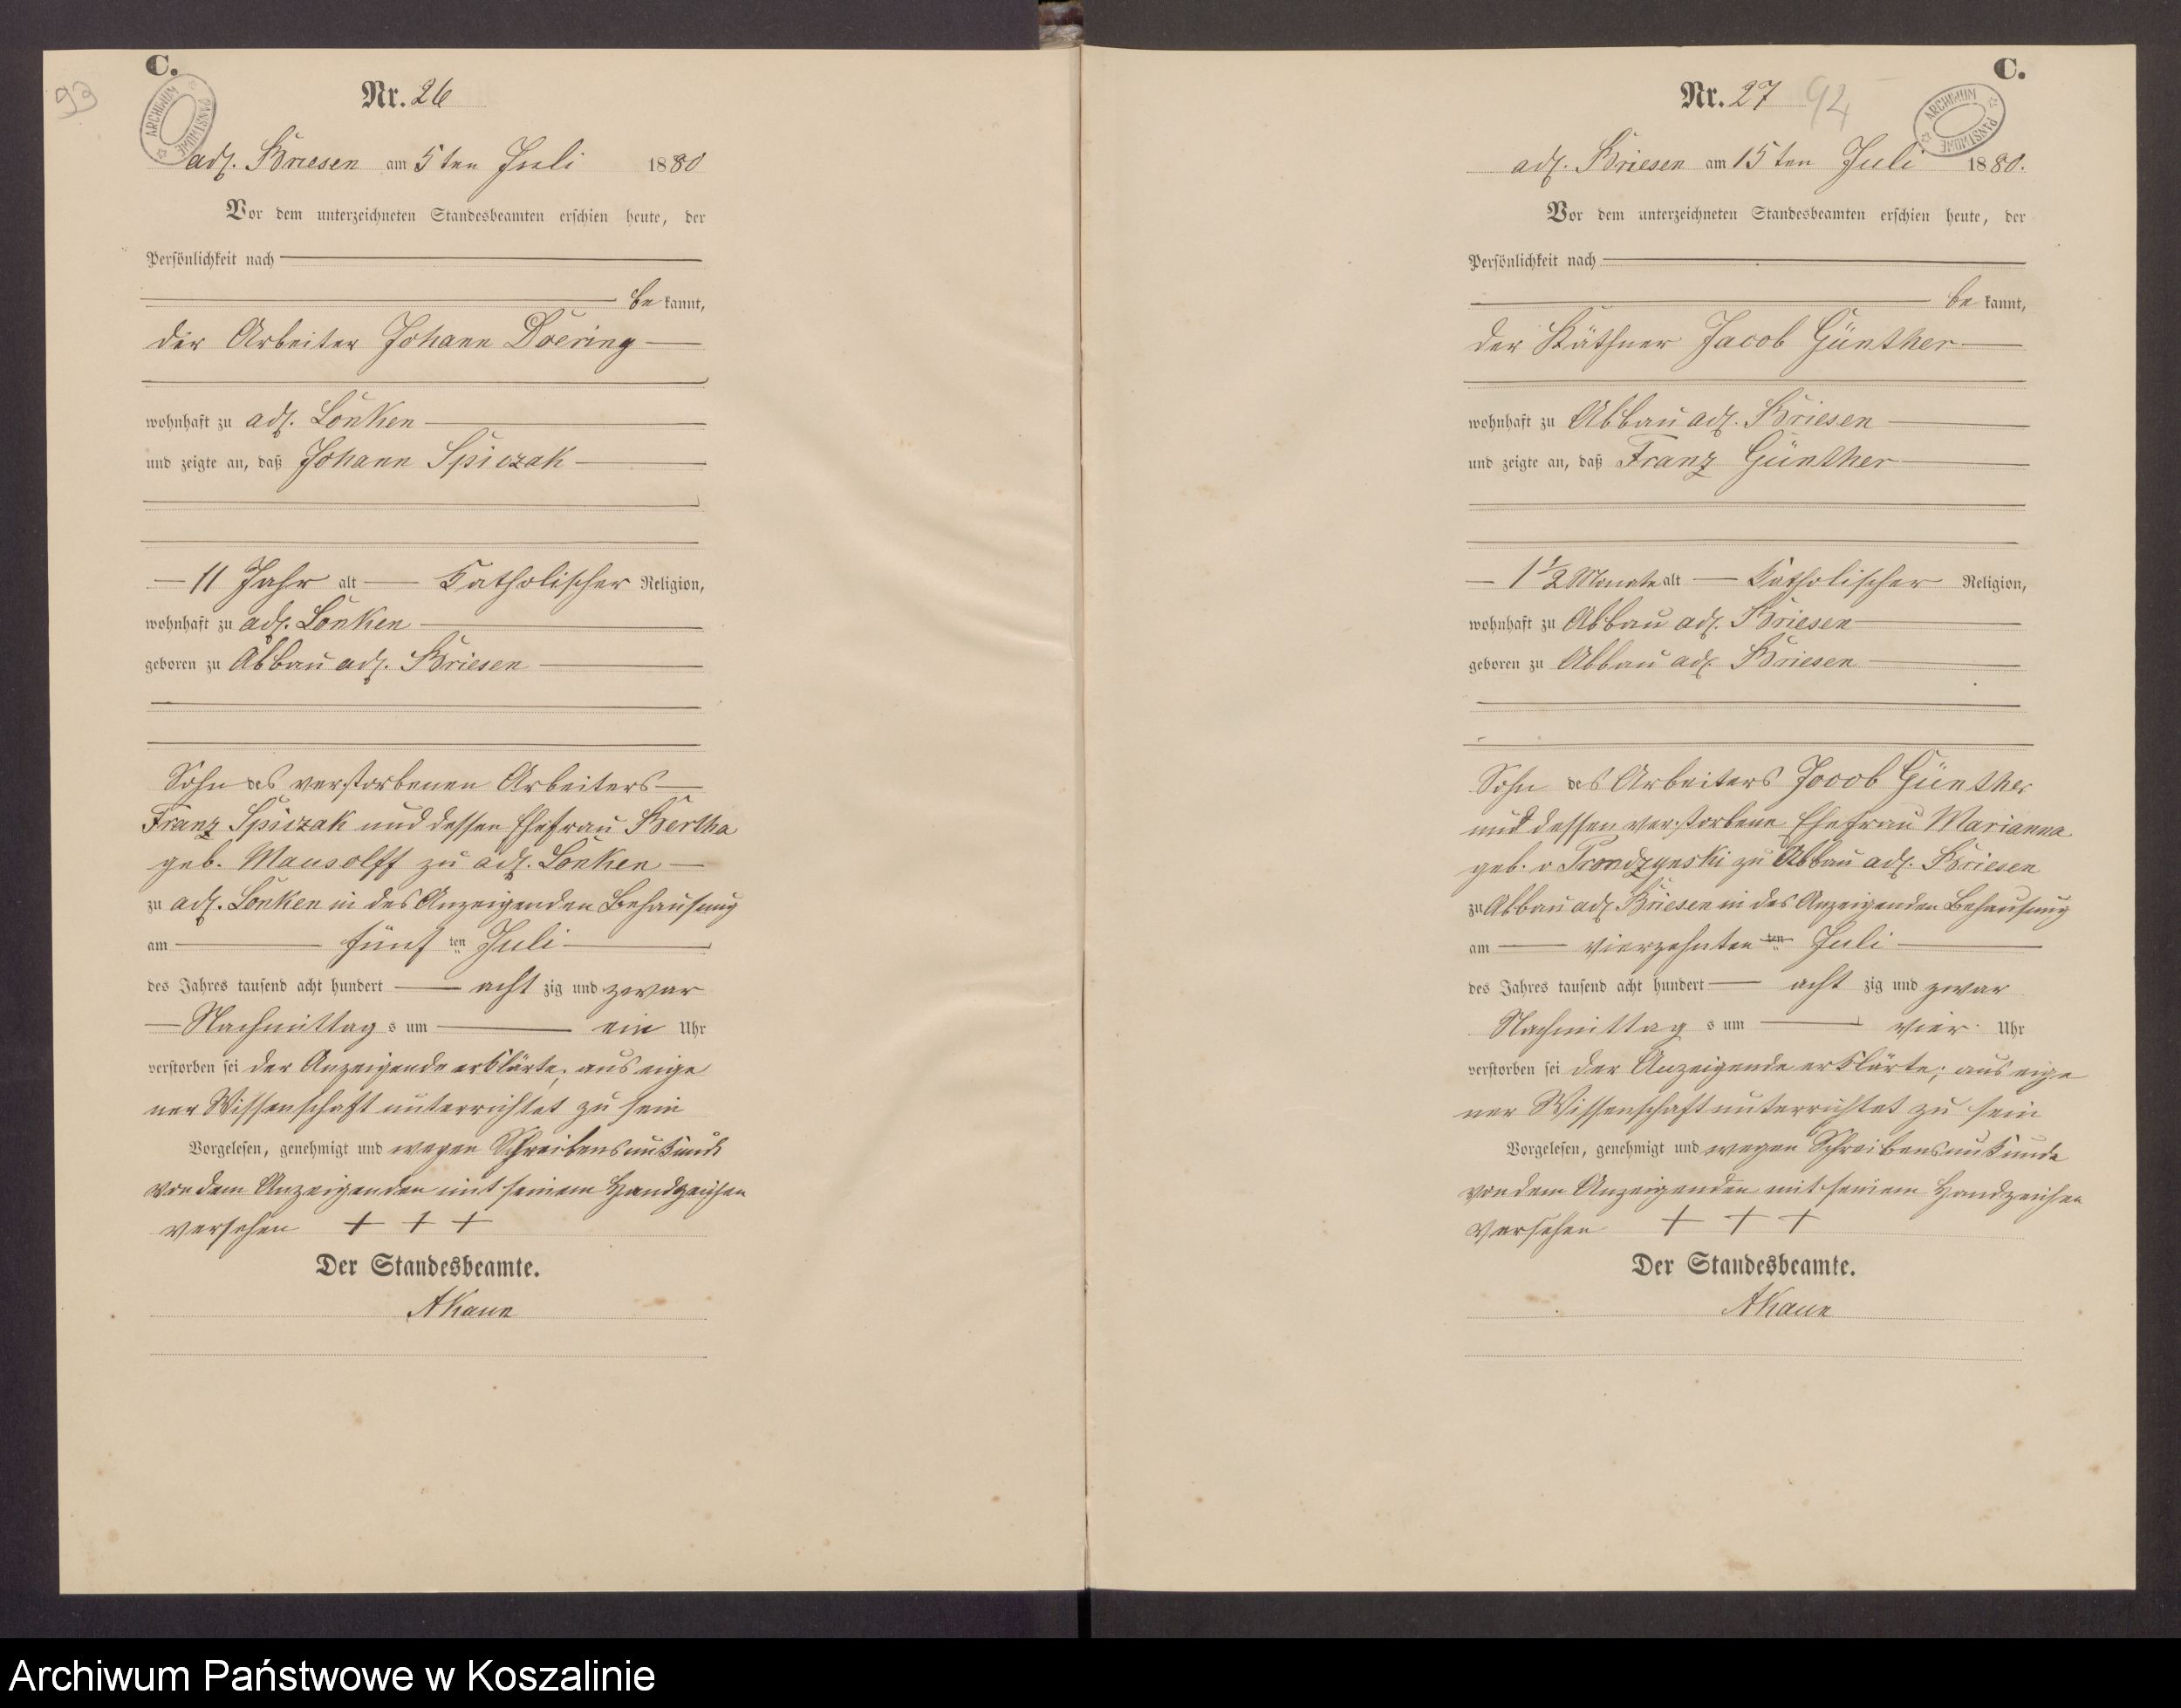 C.
93
ARCHIWUM PAŃSTWOWE
Nr. 26
adl. Briesen am 5ten Juli 1880
Vor dem unterzeichneten Standesbeamten erschien heute, der
Persönlichkeit nach
be kannt,
der Arbeiter Johann Doering
wohnhaft zu adl. Lonken
und zeigte an, daß Johann Spiczak
11 Jahr alt Katholischer Religion,
wohnhaft zu adl. Lonken
geboren zu Abbau adl. Briesen
Sohn des verstorbenen Arbeiters
Franz Spiczak und dessen Ehefrau Bertha
geb. Mausolff zu adl. Lonken
zu adl. Lonken in des Anzeigenden Behausung
am fünf ten Juli
des Jahres tausend acht hundert acht zig und zwar
Nachmittag s um ein Uhr
verstorben sei der Anzeigende erklärte, aus eige
ner Wissenschaft unterrichtet zu sein
Vorgelesen, genehmigt und wegen Schreibensunkunde
von dem Anzeigenden mit seinem Handzeichen
versehen + + +
Der Standesbeamte.
AKaun
C.
Nr. 27 94
ARCHIWUM PAŃSTWOWE
adl. Briesen am 15ten Juli 1880.
Vor dem unterzeichneten Standesbeamten erschien heute, der
Persönlichkeit nach
be kannt,
der Käthner Jacob Günther
wohnhaft zu Abbau adl. Briesen
und zeigte an, daß Franz Günther
1 1/2 Monate alt Katholischer Religion,
wohnhaft zu Abbau adl. Briesen
geboren zu Abbau adl. Briesen
Sohn des Arbeiters Jacob Günther
und dessen verstorbene Ehefrau Marianna
geb. v zu Abbau adl. Briesen
zu Abbau adl. Briesen in des Anzeigenden Behausung
am vierzehnten ten Juli
des Jahres tausend acht hundert acht zig und zwar
Nachmittag s um vier Uhr
verstorben sei der Anzeigende erklärte; aus eige
ner Wissenschaft unterrichtet zu sein
Vorgelesen, genehmigt und wegen Schreibensunkunde
von dem Anzeigenden mit seinem Handzeichen
versehen + + +
Der Standesbeamte.
AKaun
Archiwum Państwowe w Koszalinie